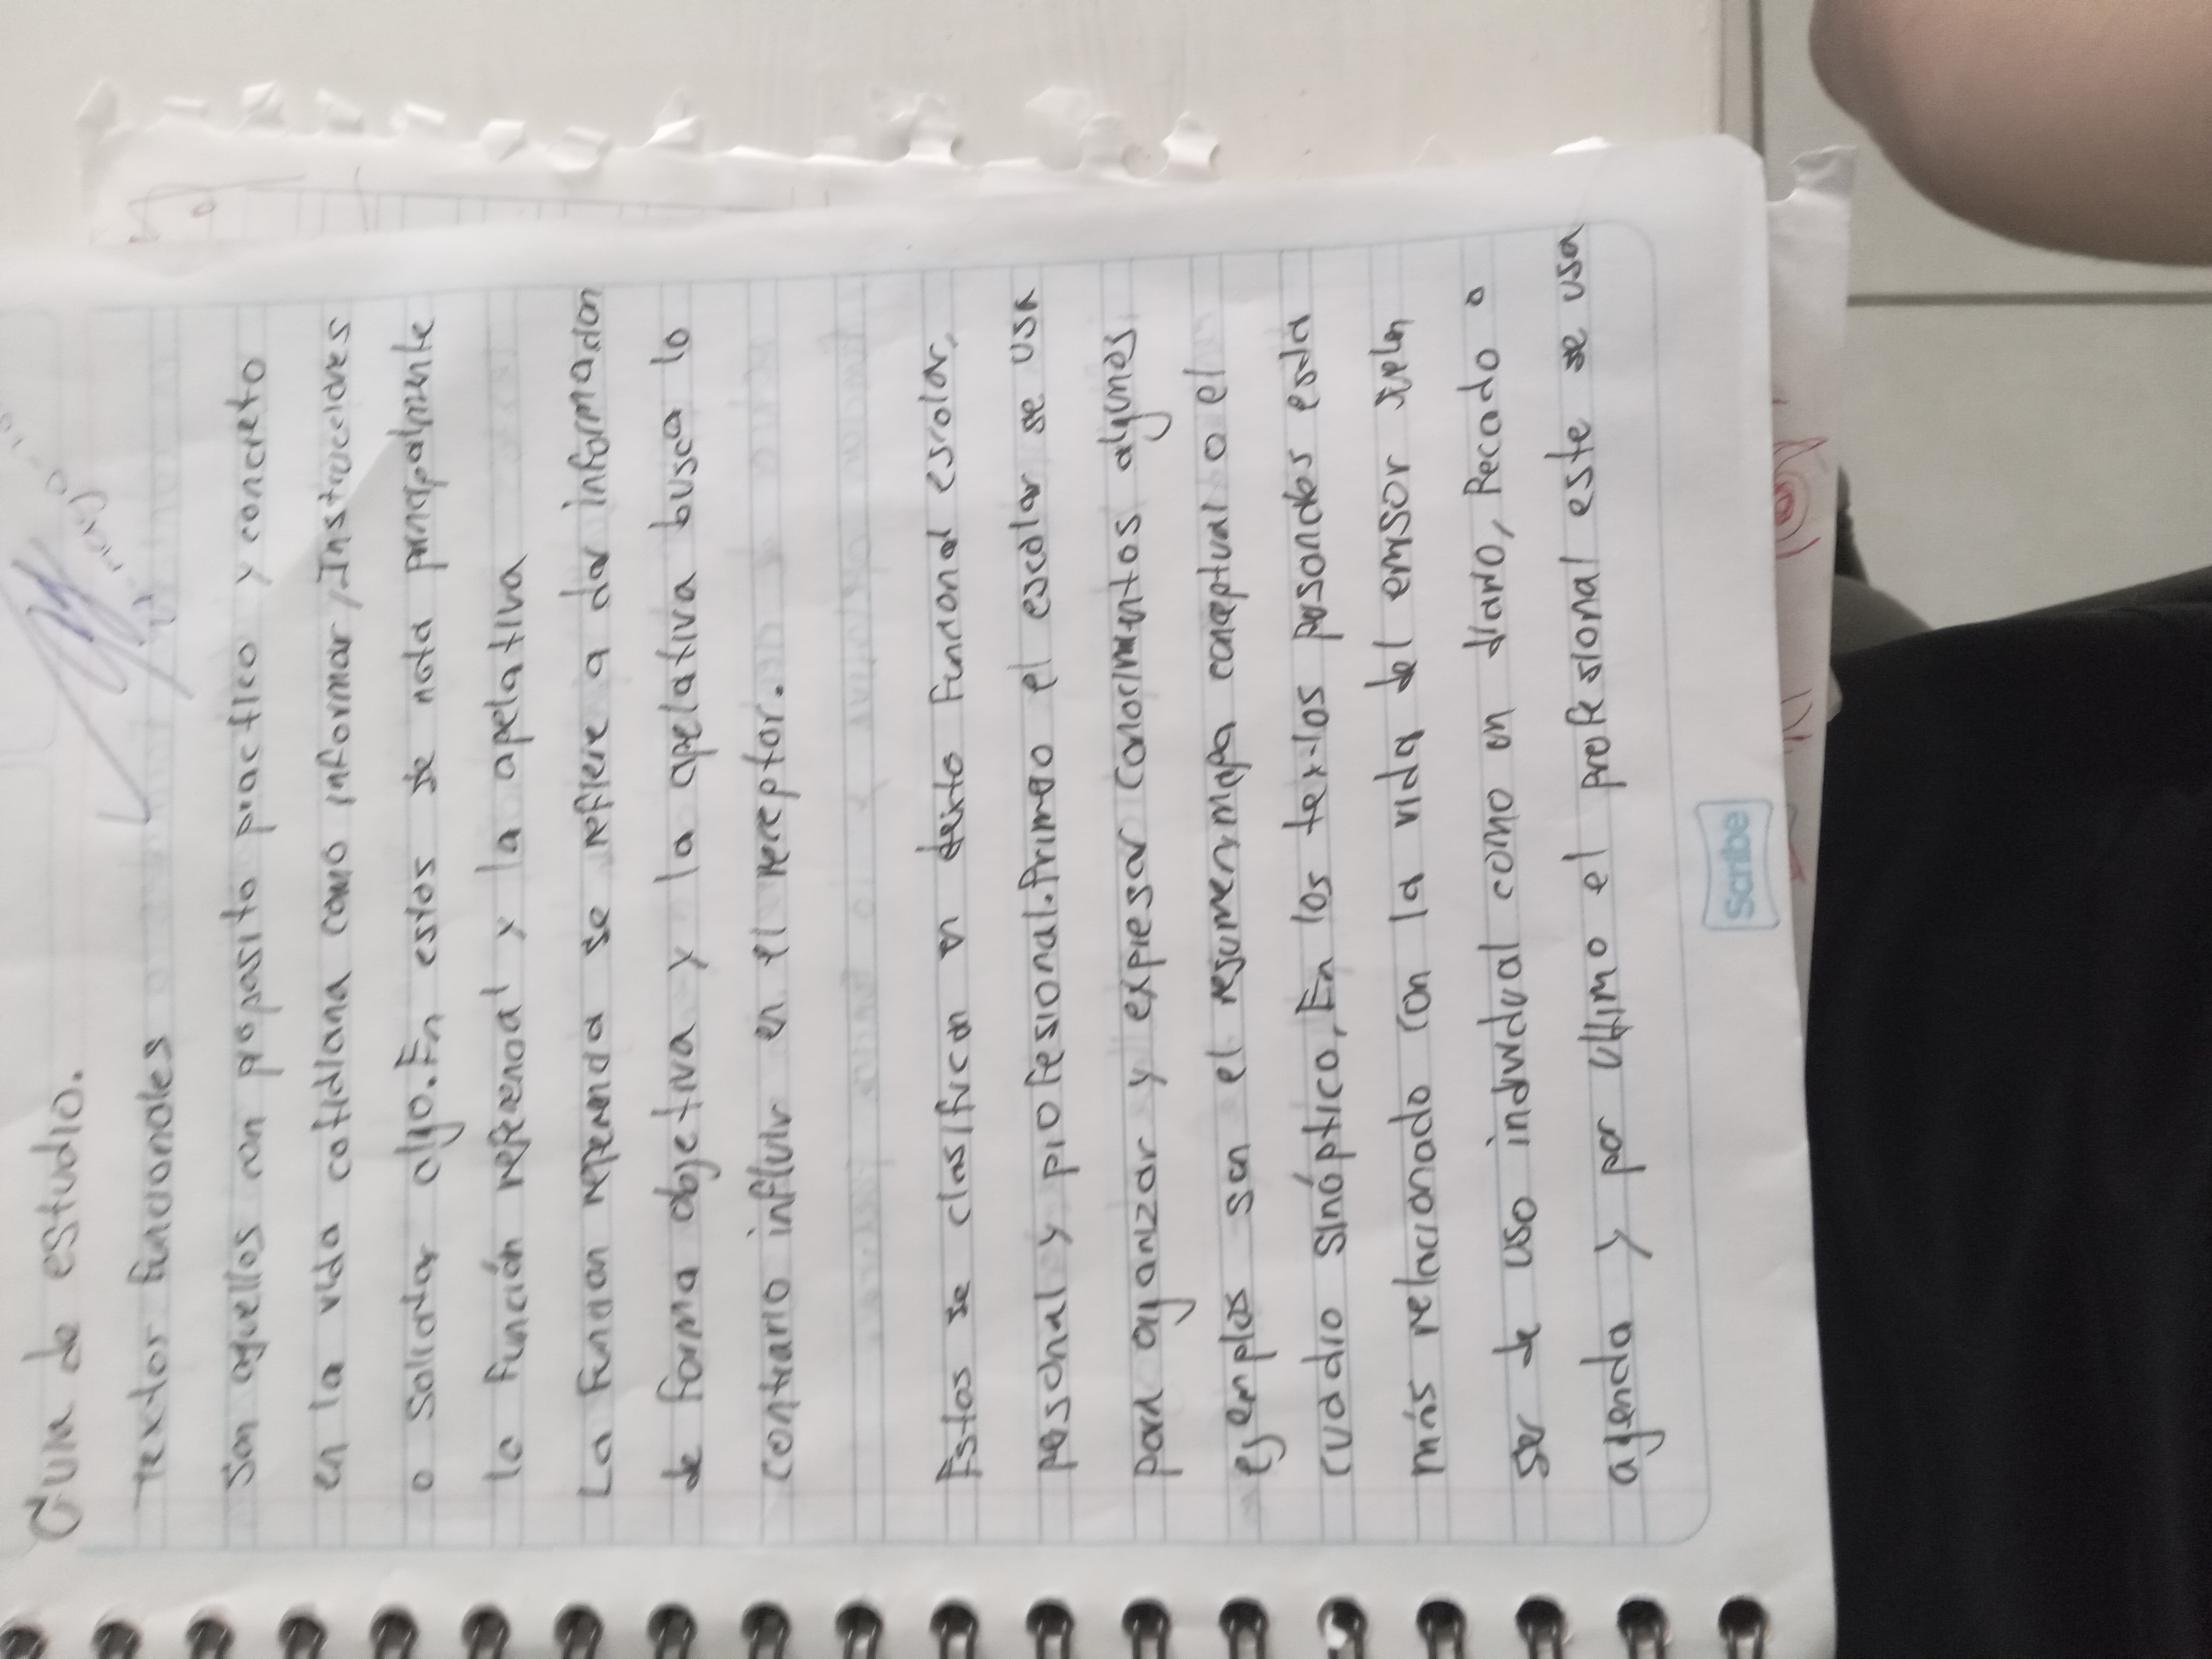 Guia de estudio.
Textos funcionales
Son aquellos con proposito practico y concreto
en la vida cotidiana como informar, Instrucciones
o Solicitar algo. En estos se nota principalmente
la función referencial y la apelativa
La funcion referencial se refiere a dar informacion
de forma objetiva y la apelativa busca lo
contrario influir en el receptor.
Estos se clasifican en texto funcional escolar,
personal y profesional. Primero el escolar se usa
para organizar y expresar conocimientos algunos
ejemplos son el resumen, mapa conceptual o el
cuadro sinóptico, En los textos personales esta
más relacionado con la vida del emisor suelen
ser de uso individual como un diario, Recado o
agenda y por ultimo el profesional este se usa
Scribe